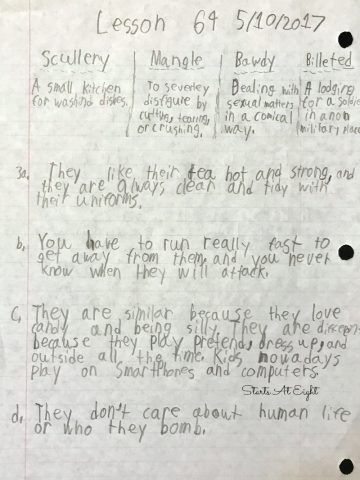 Lesson 64 5/10/2017
Scullery Mangle Bawdy Billeted
A small kitchen
for washing dishes.
To severley
disfigure by
cutting, tearing,
or crushing.
Dealing with
sexual matters
in a comical
way.
A lodging
for a soldier
in a non
military place
3a. They like their tea hot and strong, and
they are always clear and tidy with
their uniforms.
b. You have to run really fast to
get away from them, and you never
know when they will attack.
c. They are similar because they love
candy and being silly. They are
because they play pretend, dress up, and
outside all the time. Kids nowadays
play on Smartphones and computers.
Starts At Eight
d. They don't care about human life
or who they bomb.